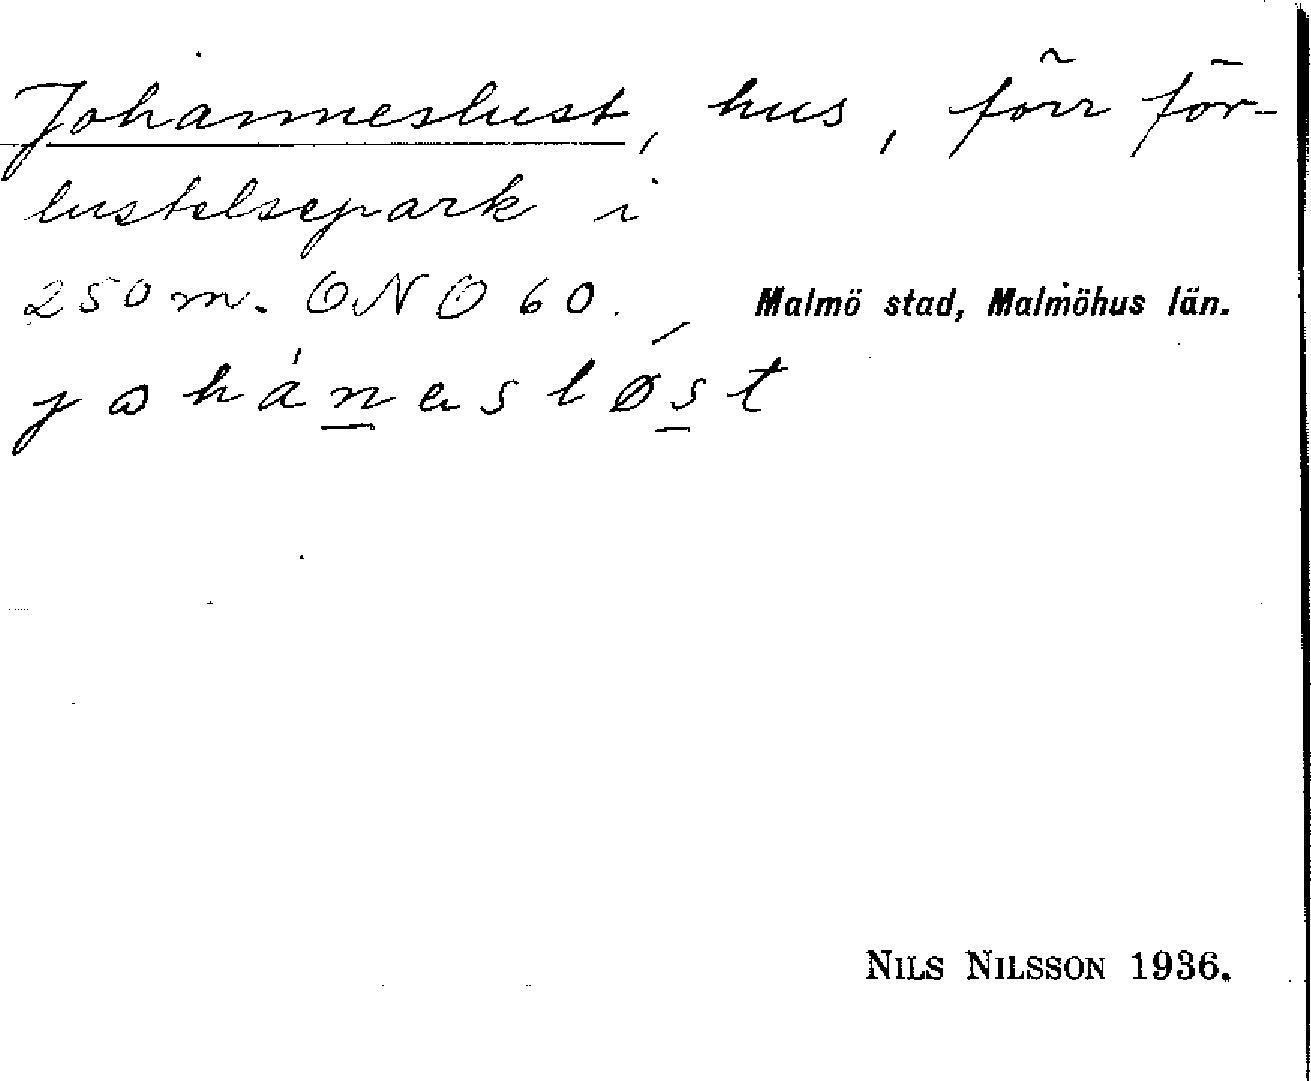 Johanneslust, hus, förr för-
lustelsepark i
250 m. ONO 60. Malmö stad, Malmöhus län.
johánasløst
NILS NILSSON 1936.